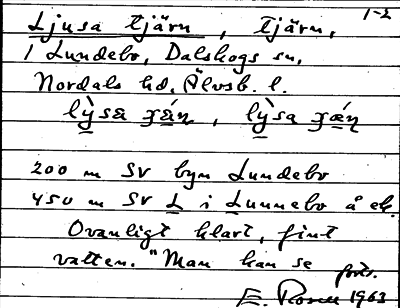 1-2
Ljusa tjärn, tjärn,
i Lundebo, Dalskogs sn,
Nordals hd, Älvsb. l.
lỳsa ɟæ̀ɳ, lỳsa ɟæ̀ɳ
200 m SV byn Lundebo
450 m SV L i Lunnebo å ek.
Ovanligt klart, fint
vatten. "Man kan se
forts.
E. Rosell 1963